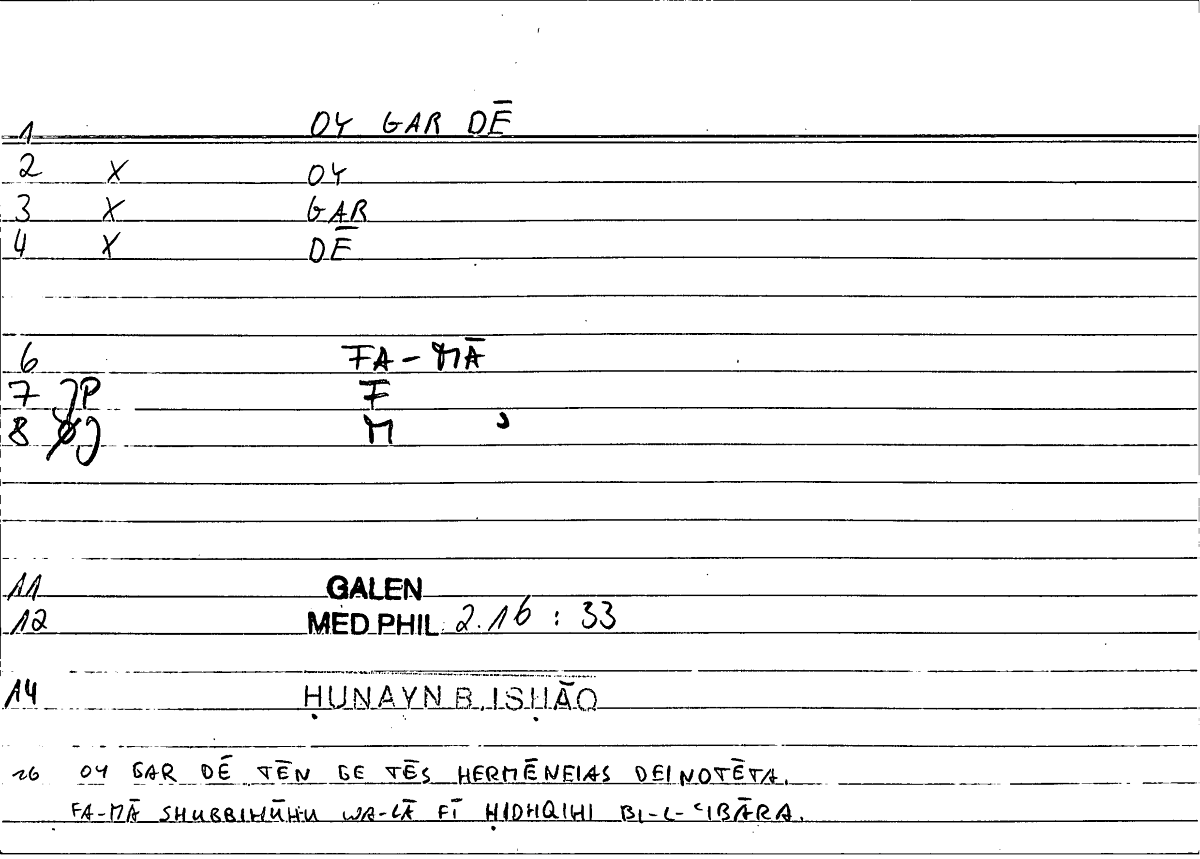 1 OY GAR DĒ
2 X OY
3 X GAR
4 X DĒ
6 FA-MĀ
7 JP F
8 J M
11 GALEN
12 MED PHIL 2.16 : 33
14 ḤUNAYN B. ISḤĀQ
26 OY GAR DĒ TĒN GE TĒS HERMĒNEIAS DEINOTĒTA.
FA-MĀ SHUBBIHŪHU WA-LĀ FĪ ḤIDHQIHI BI-L-ʿIBĀRA.